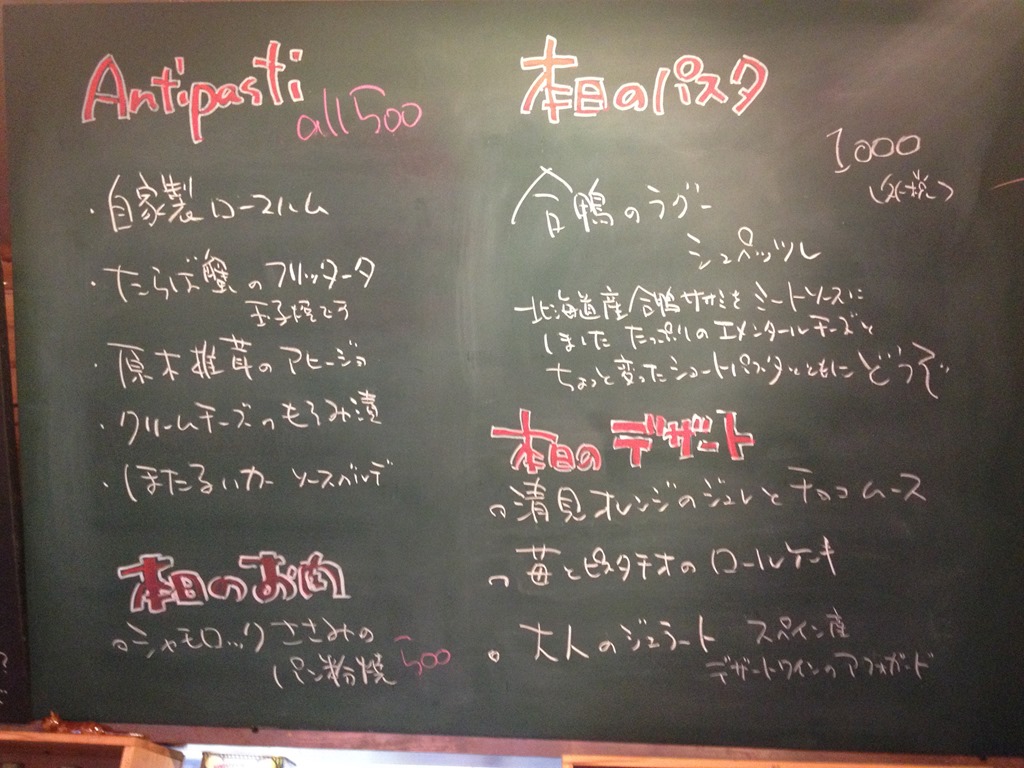 Antipasti
all 500
・自家製ロースハム
・たらば蟹のフリッタータ
玉子焼どす
・原木椎茸のアヒージョ
・クリームチーズのもろみ漬
・ほたるいか ソースバルデ
本日のお肉
○シャモロックささみの
パン粉焼 500
本日のパスタ
1000
(外税)
合鴨のラグー
シュペッツレ
北海道産合鴨ササミをミートソースに
しました たっぷりのエメンタールチーズと
ちょっと変ったショートパスタとともにどうぞ
本日のデザート
○清見オレンジのジュレとチョコムース
○苺とピスタチオのロールケーキ
○大人のジェラート スペイン産
デザートワインのアフォガード